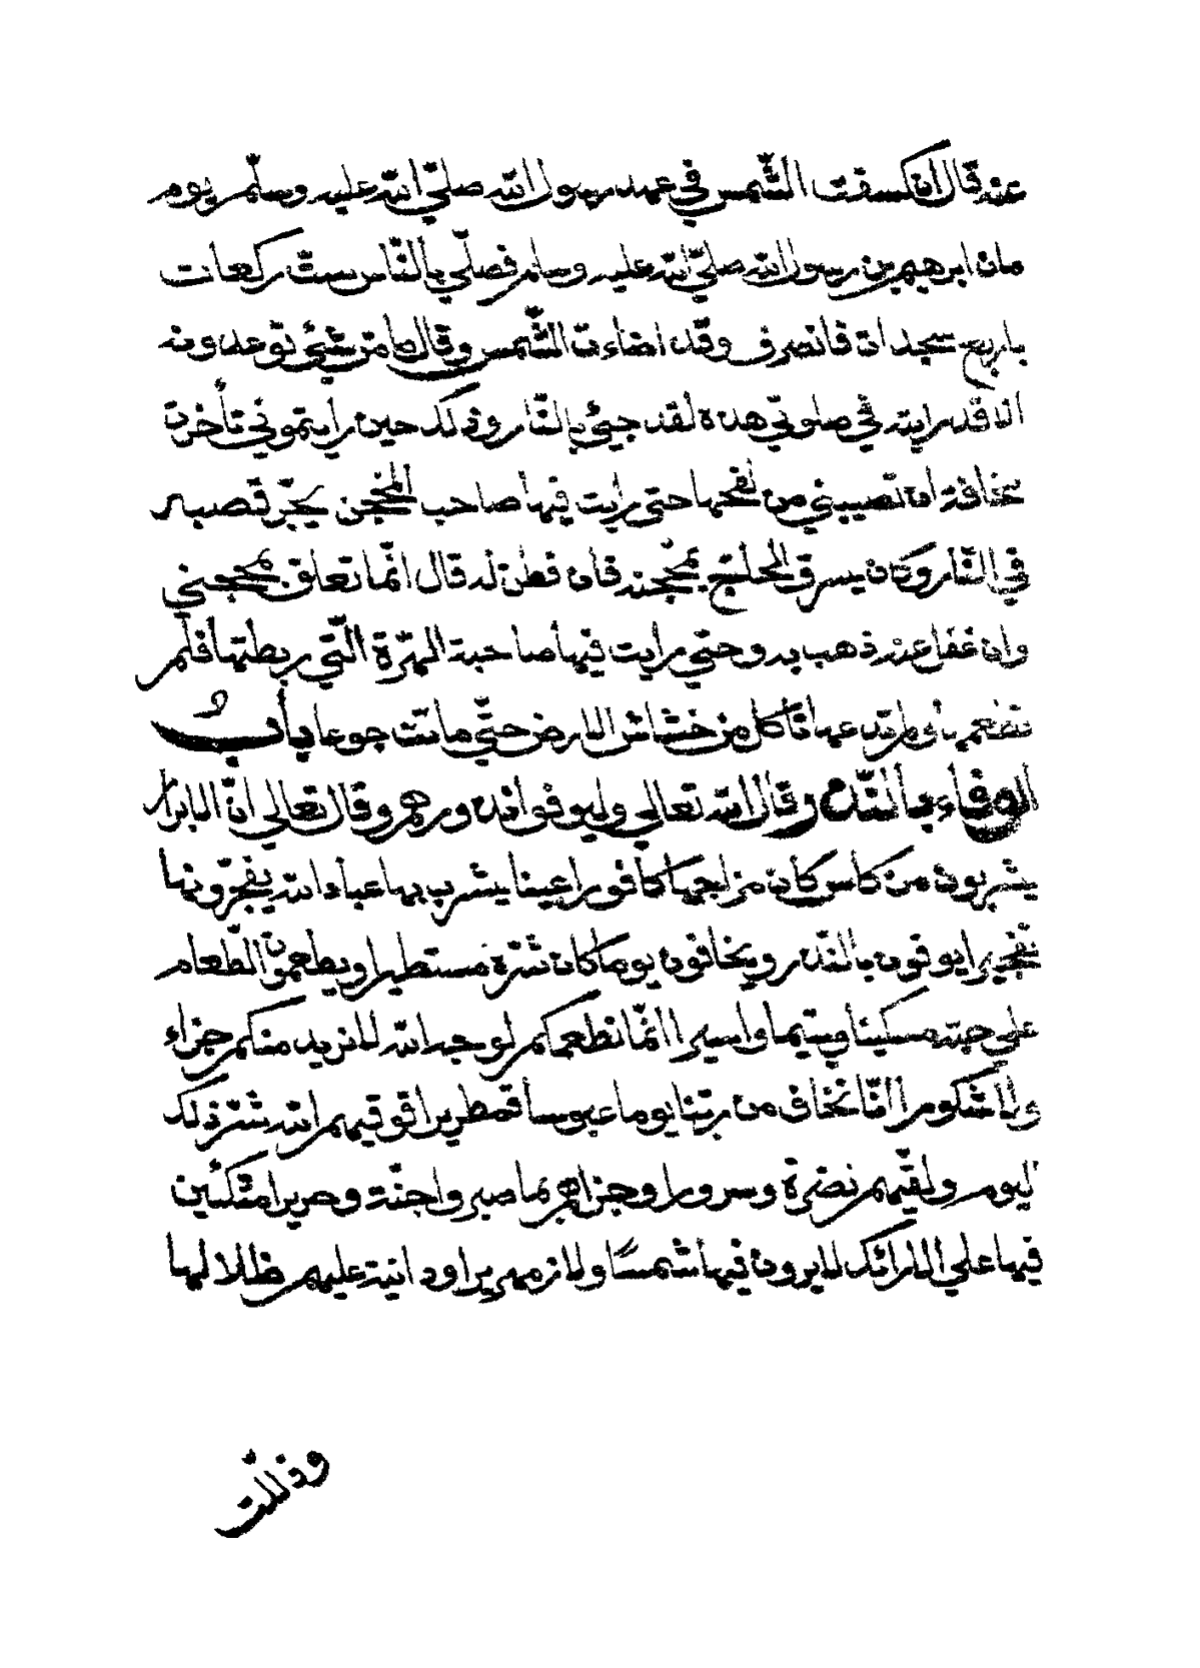 عنه قال انكسفت الشّمس في عهد رسول الله صليّ الله عليه وسلّم يوم
مات ابرهيم بن رسول الله صليّ الله عليه وسلم فصلّي بالنّاس ستّ ركعات
باربع سجدات فانصرف وقد اضاءت الشّمس وقال ما من شيئ توعدونه
الا قد رايته في صلوتي هذه لقد جيئ بالنّار وذلك حين رأيتموني تأخرت
مخافة ان تصيبني من لفحها حتي رأيت فيها صاحب المحجن يجرّ قصبه
في النّار وكان يسرق الحاجّ بمحجنه فان فطن له قال انّما تعلق بمحجني
وان غفل عنه ذهب به وحتي رأيت فيها صاحبة الهرّة الّتي ربطتها فلم
تطعمها ولم تدعها تأكل من خشاش الارض حتّي ماتت جوعا باب
الوفاء بالنّذر وقال الله تعالي وليوفوا نذورهم وقال تعالي انّ الابرار
يشربون من كاس كان مزاجها كافورا عينا يشرب بها عباد الله يفجّرونها
تفجيرا يوفون بالنّذر ويخافون يوما كان شرّه مستطيرا ويطعمون الطّعام
علي حبّه مسكينا ويتيما واسيرا انّما نطعمكم لوجه الله لا نريد منكم جزاء
ولا شكورا انّا نخاف من ربّنا يوما عبوسا قمطريرا فوقيهم الله شرّ ذلك
اليوم ولقّيهم نضرة وسرورا وجزاهم بما صبروا جنّة وحريرا متّكئين
فيها علي الارائك لا يرون فيها شمسًا ولا زمهريرا ودانية عليهم ظلالها
وذلّلت